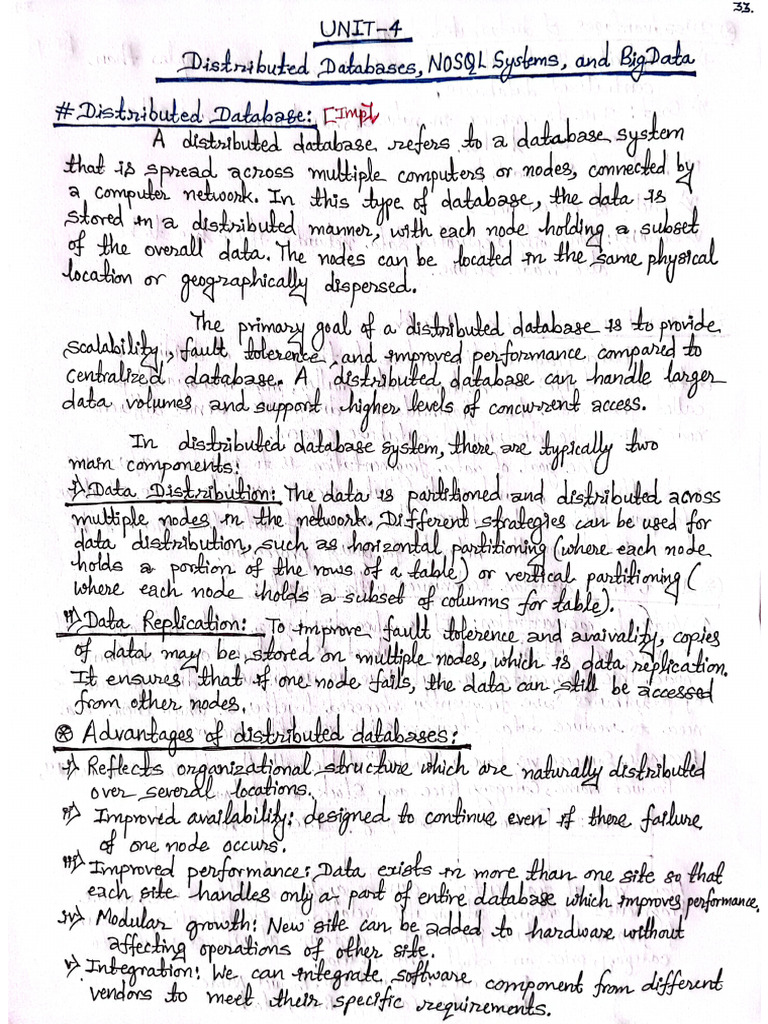 33.
UNIT-4
Distributed Databases, NOSQL Systems, and BigData
# Distributed Database: [Imp]
A distributed database refers to a database system
that is spread across multiple computers or nodes, connected by
a computer network. In this type of database, the data is
stored in a distributed manner, with each node holding a subset
of the overall data. The nodes can be located in the same physical
location or geographically dispersed.
The primary goal of a distributed database is to provide
scalability, fault tolerence, and improved performance compared to
centralized database. A distributed database can handle larger
data volumes and support higher levels of concurrent access.
In distributed database system, there are typically two
main components:
i) Data Distribution: The data is partitioned and distributed across
multiple nodes in the network. Different strategies can be used for
data distribution, such as horizontal partitioning (where each node
holds a portion of the rows of a table) or vertical partitioning (
where each node holds a subset of columns for table).
ii) Data Replication: To improve fault tolerence and avaivality, copies
of data may be stored on multiple nodes, which is data replication.
It ensures that if one node fails, the data can still be accessed
from other nodes.
⊛ Advantages of distributed databases:
i) Reflects organizational structure which are naturally distributed
over several locations.
ii) Improved availability: designed to continue even if there failure
of one node occurs.
iii) Improved performance: Data exists in more than one site so that
each site handles only a part of entire database which improves performance.
iv) Modular growth: New site can be added to hardware without
affecting operations of other site.
v) Integration: We can integrate software component from different
vendors to meet their specific requirements.